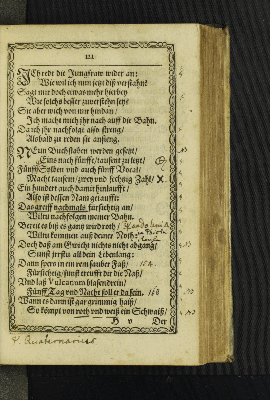 121
ICh redt die Jungfraw wider an:
Wie wil ich nun jetzt diß verstahn?
Sagt mir doch etwas mehr hierbey
Wie solchs besser zuverstehn sey:
Sie aber wich von mir hindan/
Ich macht mich jhr nach auff die Bahn.
Da ich jhr nachfolgt also streng/
Alsbald zu reden sie anfieng.
NEun Buchstaben werden gesetzt/
Eins nach fünffe/
Fünff Solden und auch fünff Vocal/
Macht tausent/zwey und sechtzig Zahl/ X
Ein hundert auch damit
Also ist dessen Nam getaufft:
Das greiff nachmals fürsichtig an/
Wiltu nachfolgen meiner Bahn.
Bereit so biß es gantz wird roth/
Wiltu kommen auß deiner Noth:
Doch daß am Gwicht nichts nicht abgang/
Sunst jrrstu all dein Lebenlang:
Dann spers in ein rein sauber Faß/
Fürsichtig/sunst treufft dir die Naß/
Und laß Vulcanum blasen drein/
Fünff Tag und Nacht soll er da sein.
Wann es dann ist gar grimmig haiß/
So kömpt von roth und weiß ein Schwaiß/
H v Der
Quaternarius